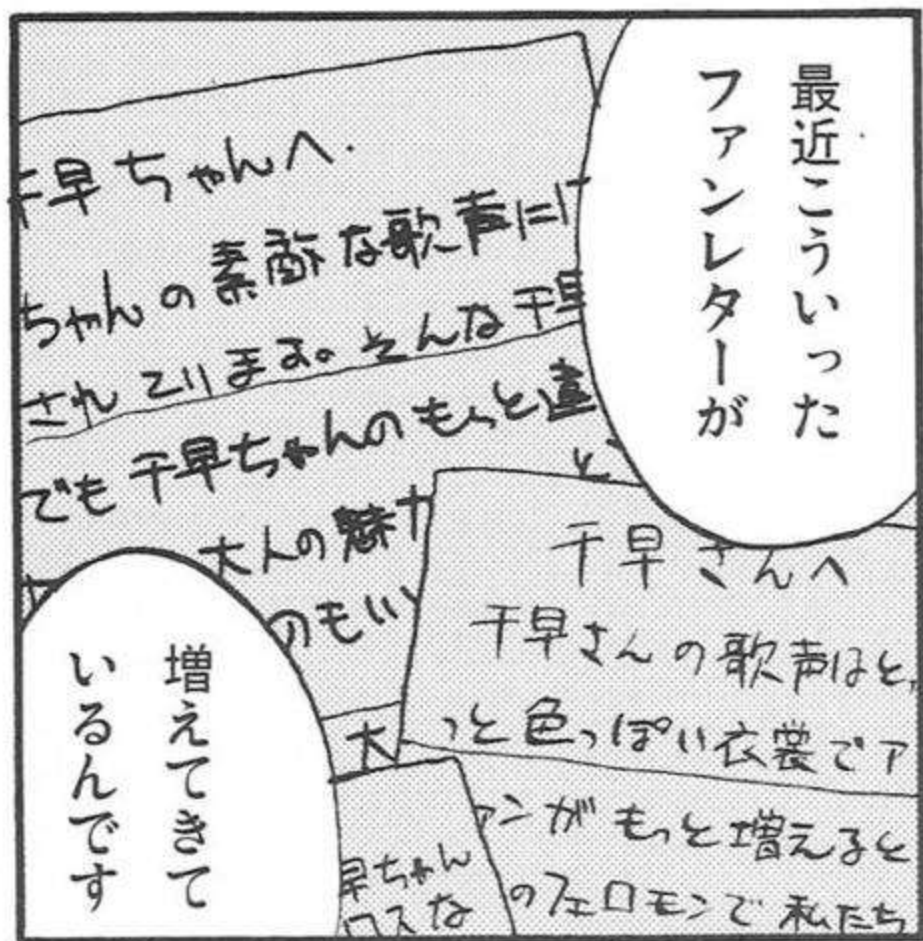 最近こういった
ファンレターが
千早ちゃんへ.
ちゃんの素敵な歌声に
されています。そんな千早
でも千早ちゃんのもっと違
大人の魅力
のもいい
大
千早さんへ
千早さんの歌声はと
っと色っぽい衣裳でア
ァンがもっと増えると
のフェロモンで私たち
早ちゃん
ロスな
増えてきて
いるんです